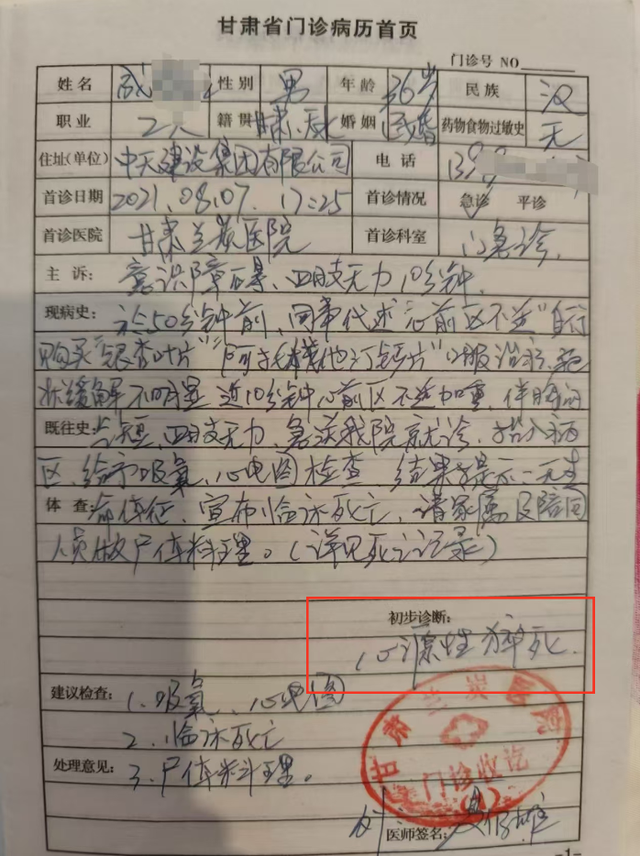 甘肃省门诊病历首页
门诊号 NO
姓名 成 性别 男 年龄 36岁 民族 汉
职业 工人 籍贯 甘肃、天水 婚姻 已婚 药物食物过敏史 无
住址(单位) 中天建设集团有限公司 电话 139
首诊日期 2021.08.07. 17:25 首诊情况 急诊 平诊
首诊医院 甘肃兰炭医院 首诊科室 门急诊.
主诉: 意识障碍、四肢无力10分钟.
现病史: 于50分钟前,同事代述心前区不适"自行
购买"银杏叶片""阿托伐他汀钙片"口服治疗,症
状缓解不明显 近10分钟心前区不适加重,伴胸闷
既往史: 气短,四肢无力,急送我院就诊,抬入病
区,给予吸氧,心电图检查 结果提示:无生
体查: 命体征,宣布临床死亡,请家属及陪同
人员做尸体料理。(详见死亡记录)
初步诊断:
心源性猝死.
建议检查: 1.吸氧、心电图
2.临床死亡
处理意见: 3.尸体料理。
甘肃 炭医院
门诊收讫
医师签名:
-1-